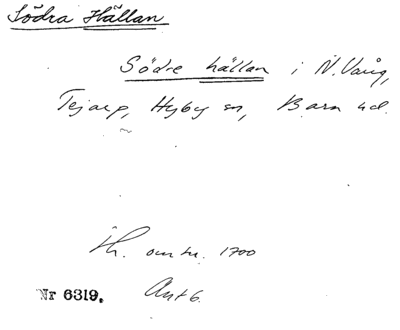 Södra Hällan
Södre hällan i N. Vång,
Tejarp, Hyby sn, Bara hd.
Nr 6319. Ant 6.